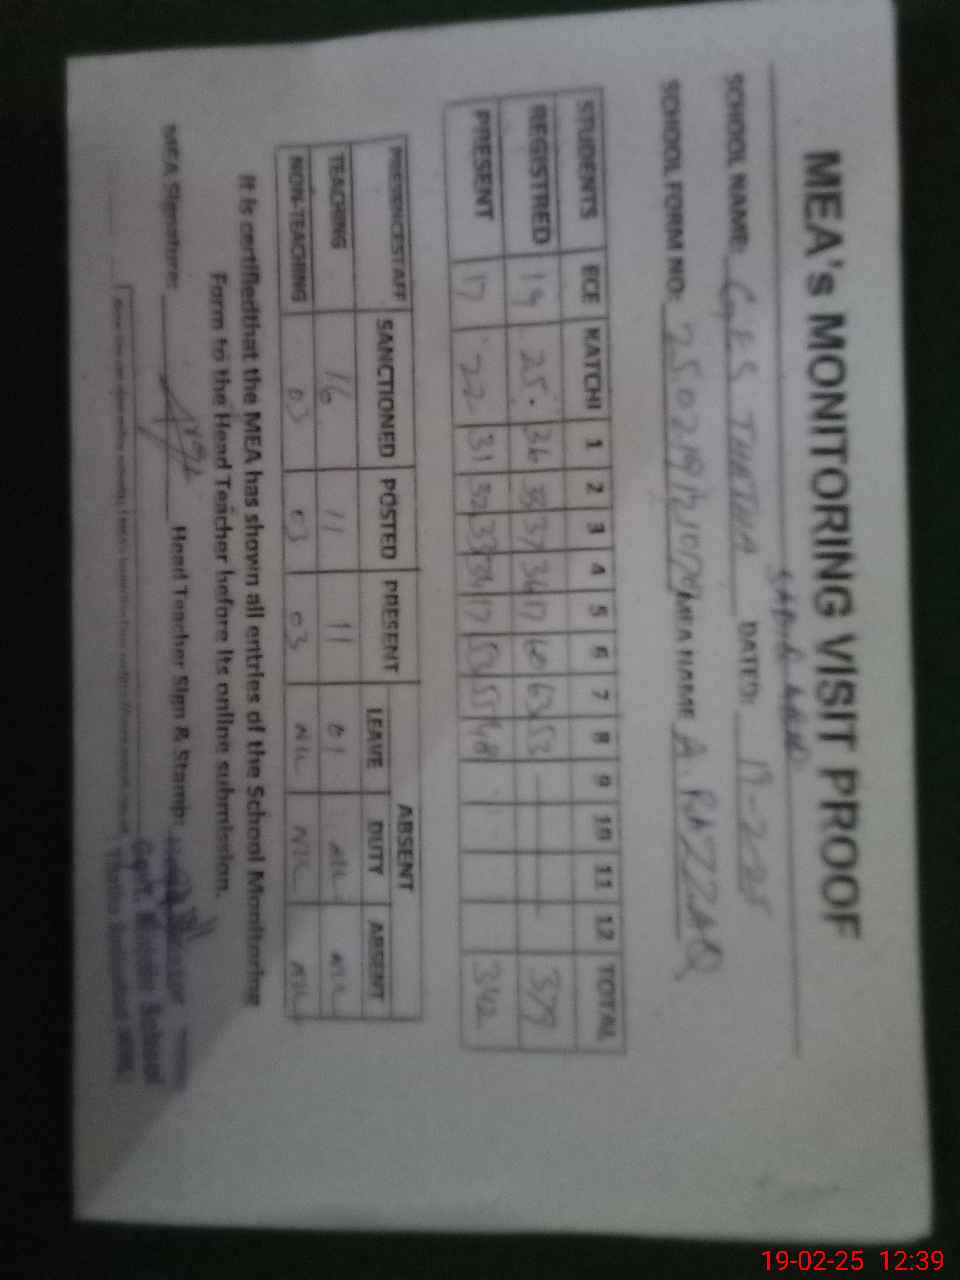 MEA's MONITORING VISIT PROOF
SCHOOL NAME: DATED: 19-2-25
SCHOOL FORM NO: MEA NAME A. RAZZAQ
STUDENTS ECE KATCHI 1 2 3 4 5 6 7 8 9 10 11 12 TOTAL
REGISTRED 19 25 36 37 36 17 60 63 53 — — — — 377
PRESENT 17 22 31 32 33 17 53 55 48 342
PRESENCESTAFF SANCTIONED POSTED PRESENT ABSENT
LEAVE DUTY ABSENT
TEACHING 16 11 11 01 NIL NIL
NON-TEACHING 03 03 03 NIL NIL NIL
It is certifiedthat the MEA has shown all entries of the School Monitoring
Form to the Head Teacher before its online submission.
MEA Signature: Head Teacher Sign & Stamp:
19-02-25 12:39